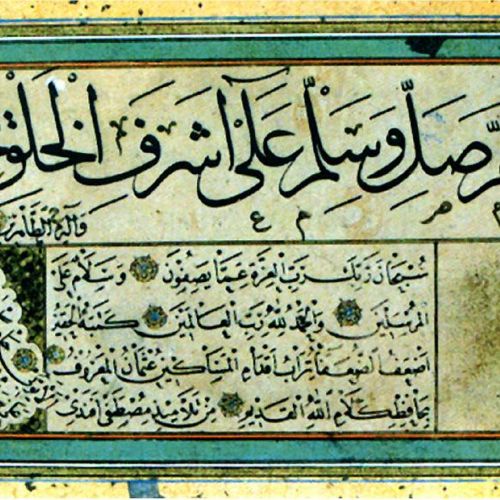 صَلِّ وَسَلِّمْ عَلَى اَشْرَفِ الْخَلْقِ
وَآلِهِ الطَّاهِرِينَ
سُبْحَانَ رَبِّكَ رَبِّ الْعِزَّةِ عَمَّا يَصِفُونَ وَسَلَامٌ عَلَى
الْمُرْسَلِينَ وَالْحَمْدُ لِلّٰهِ رَبِّ الْعَالَمِينَ كَتَبَهُ الْحَقِيرُ
اَضْعَفُ الضُّعَفَا تُرَابُ اَقْدَامِ الْمَسَاكِينِ عُثْمَانُ الْمَعْرُوفُ
بِحَافِظِ كَلَامِ اللّٰهِ الْقَدِيمِ مِنْ تَلَامِيذِ مُصْطَفٰى اَفَنْدِى